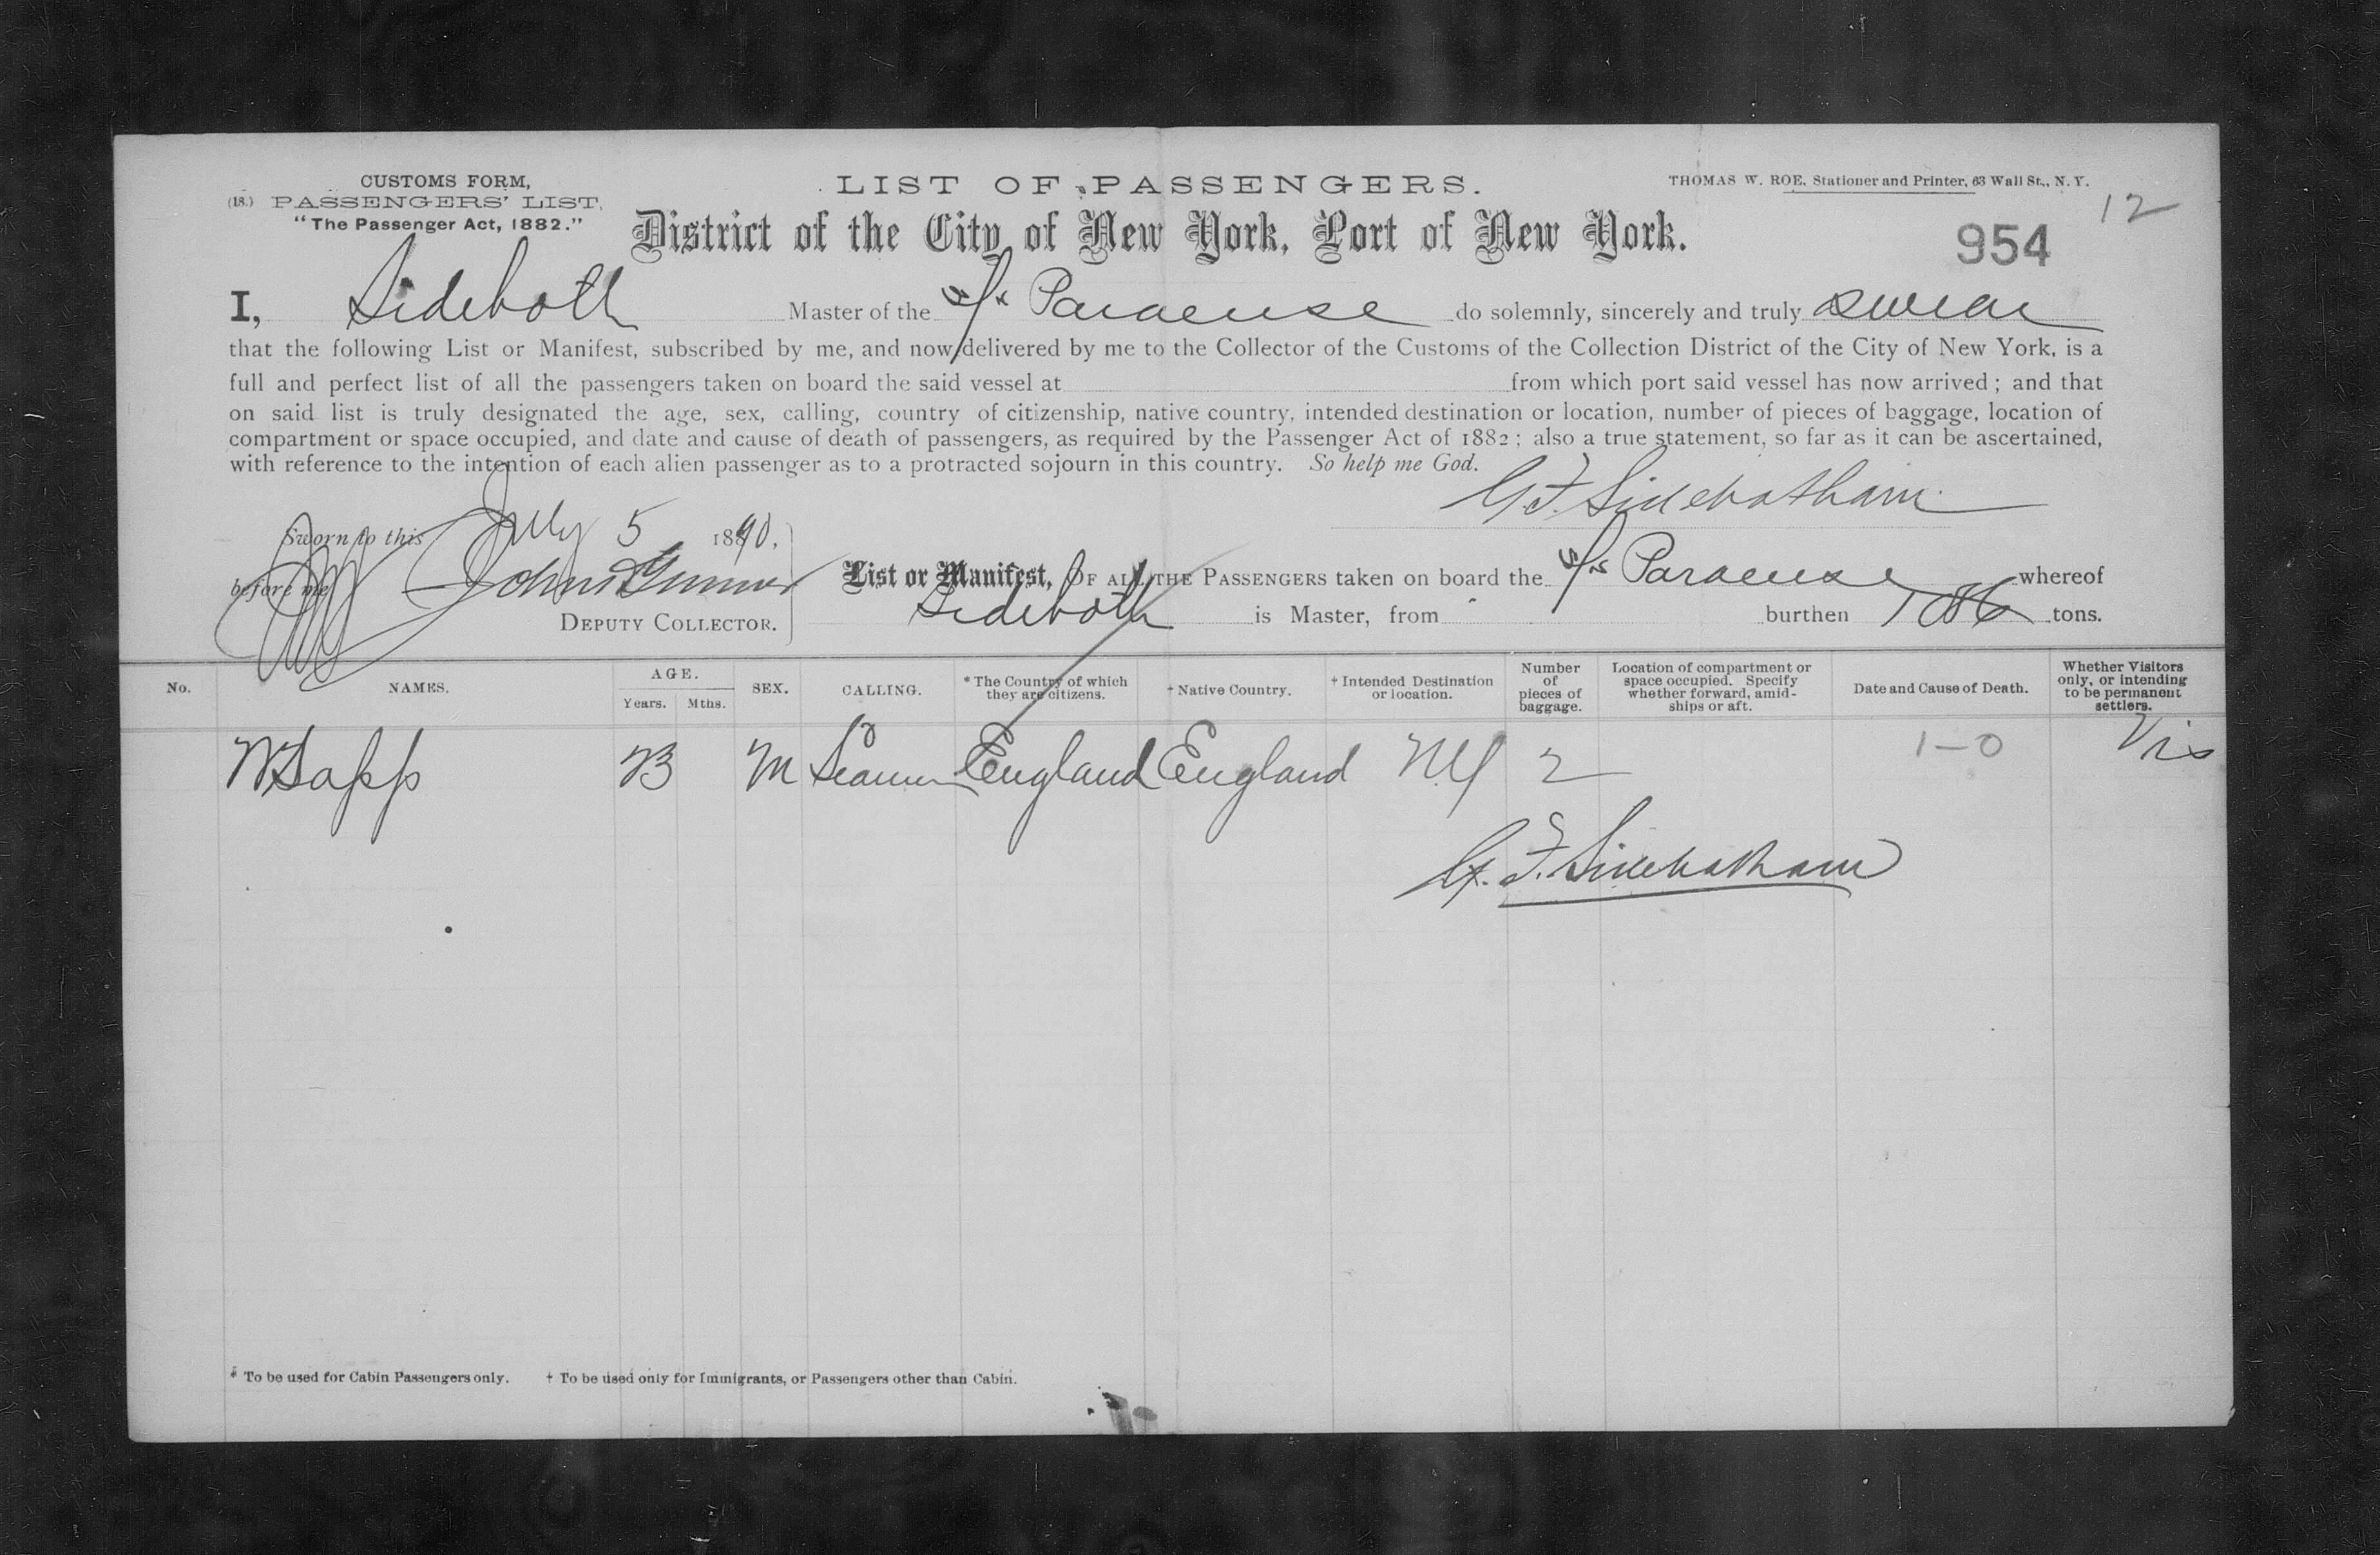 CUSTOMS FORM,
(18.) PASSENGERS' LIST,
"The Passenger Act, 1882."
LIST OF PASSENGERS.
THOMAS W. ROE, Stationer and Printer, 63 Wall St., N. Y.
12
District of the City of New York, Port of New York.
954
I, Sideboth Master of the S/s Paraense do solemnly, sincerely and truly swear
that the following List or Manifest, subscribed by me, and now delivered by me to the Collector of the Customs of the Collection District of the City of New York, is a
full and perfect list of all the passengers taken on board the said vessel at from which port said vessel has now arrived; and that
on said list is truly designated the age, sex, calling, country of citizenship, native country, intended destination or location, number of pieces of baggage, location of
compartment or space occupied, and date and cause of death of passengers, as required by the Passenger Act of 1882; also a true statement, so far as it can be ascertained,
with reference to the intention of each alien passenger as to a protracted sojourn in this country. So help me God.
G. F. Sidebotham
Sworn to this July 5 1890,
before me John
DEPUTY COLLECTOR.
List or Manifest, OF ALL THE PASSENGERS taken on board the S/s Paraense whereof
Sideboth is Master, from burthen 1086 tons.
No. NAMES. AGE. Years. Mths. SEX. CALLING. * The Country of which they are citizens. † Native Country. † Intended Destination or location. Number of pieces of baggage. Location of compartment or space occupied. Specify whether forward, amidships or aft. Date and Cause of Death. Whether Visitors only, or intending to be permanent settlers.
W Sapp 23 M England England NY 2 1-0 Vis
G. F. Sidebotham
* To be used for Cabin Passengers only. † To be used only for Immigrants, or Passengers other than Cabin.